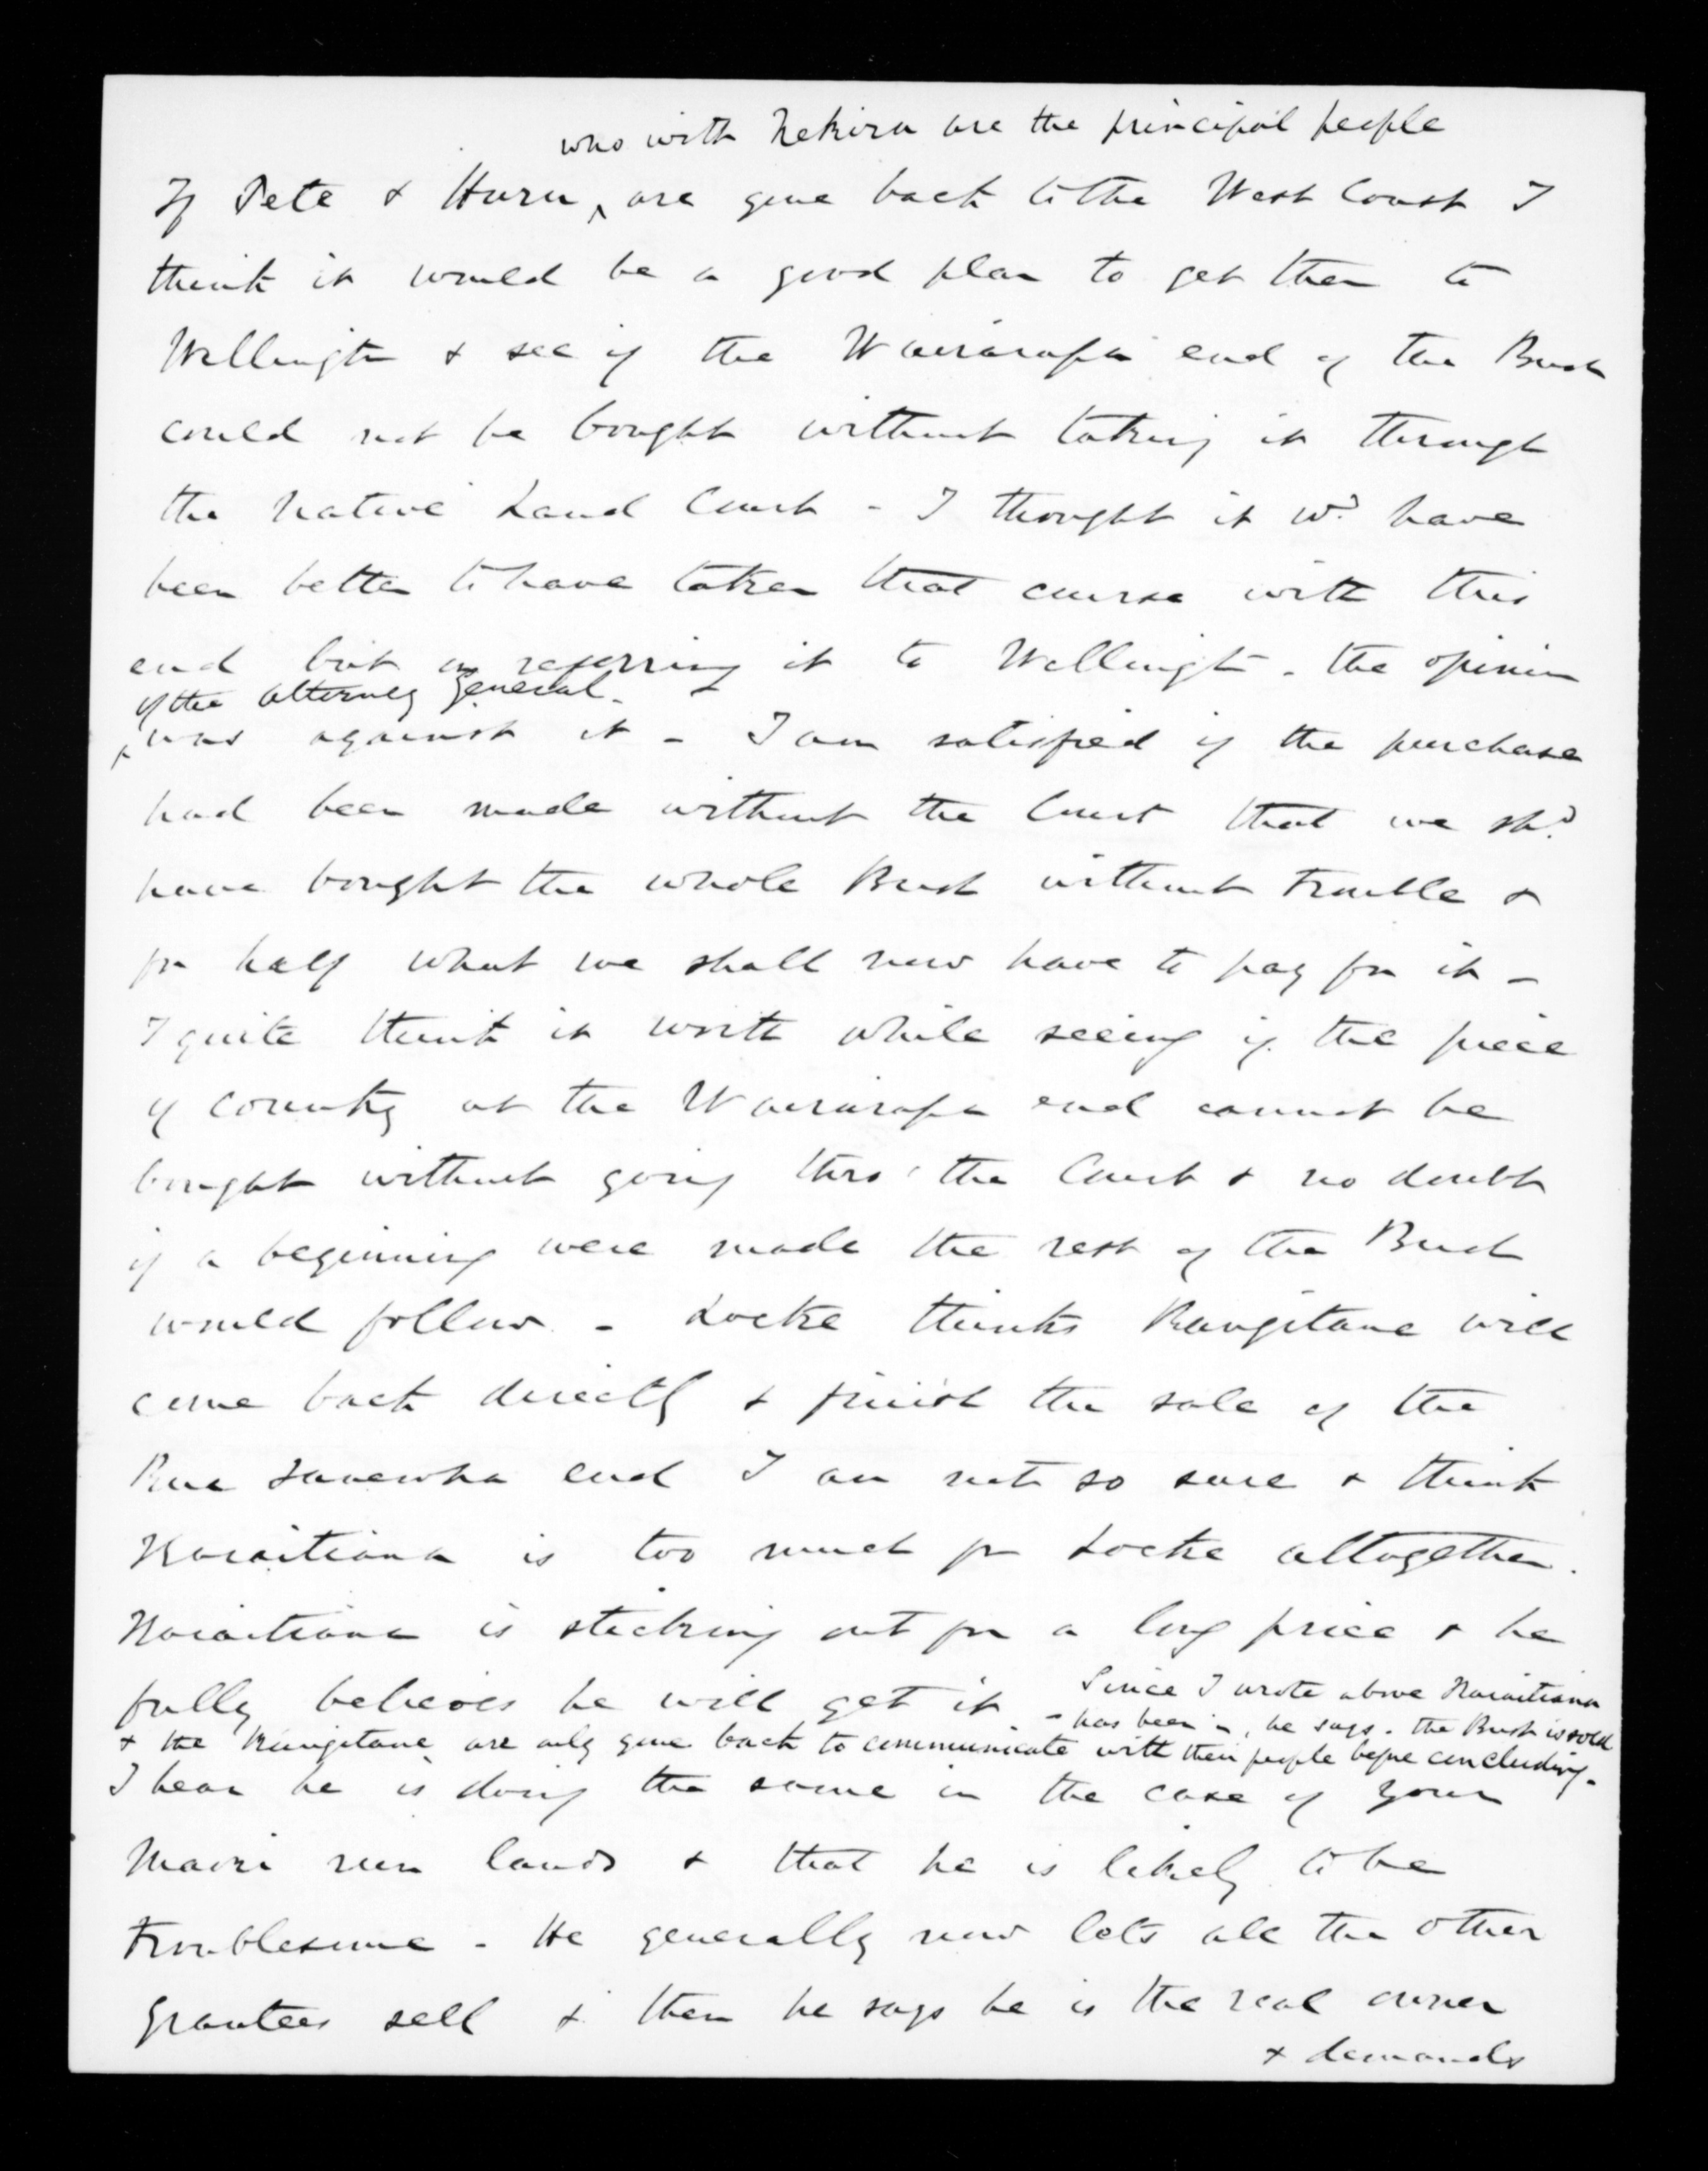 who with Nekira are the principal people
If Pete & Huru ^ are gone back to the West Coast I
think it would be a good plan to get them to
Wellington & see if the Wairarapa end of the Bush
could not be bought without taking it through
the Native Land Court - I thought it wd. have
been better to have taken that course with this
end but on referring it to Wellington - the opinion
of the Attorney General -
^ was against it - I am satisfied if the purchase
had been made without the Court that we shd.
have bought the whole Bush without trouble &
for half what we shall now have to pay for it -
I quite think it worth while seeing if the piece
of country at the Wairarapa end cannot be
bought without going thro' the Court & no doubt
if a beginning were made the rest of the Bush
would follow - Locke thinks Rangitane will
come back directly & finish the sale of the
Rua Taniwha end I am not so sure & think
Karaitiana is too much for Locke altogether.
Karaitiana is sticking out for a long price & he
fully believes he will get it Since I wrote above Karaitiana
- has been in, he says - the Bush is sold
& the Rangitane are only gone back to communicate with their people before concluding -
I hear he is doing the same in the case of your
Maori run lands & that he is likely to be
troublesome - He generally now lets all the other
Grantees sell & then he says he is the real owner
& demands